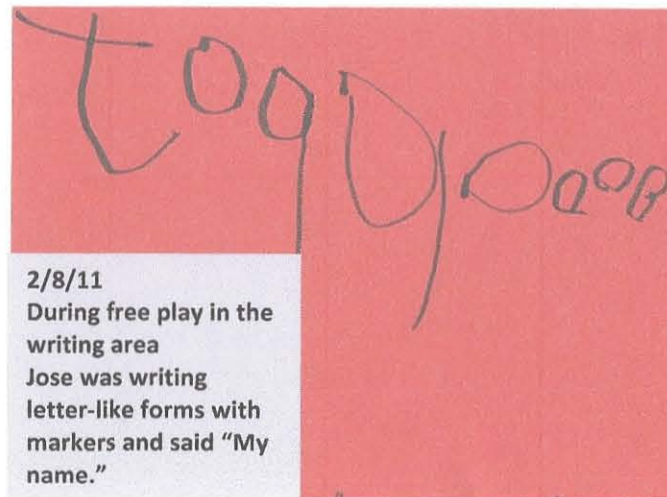 2/8/11
During free play in the
writing area
Jose was writing
letter-like forms with
markers and said “My
name.”